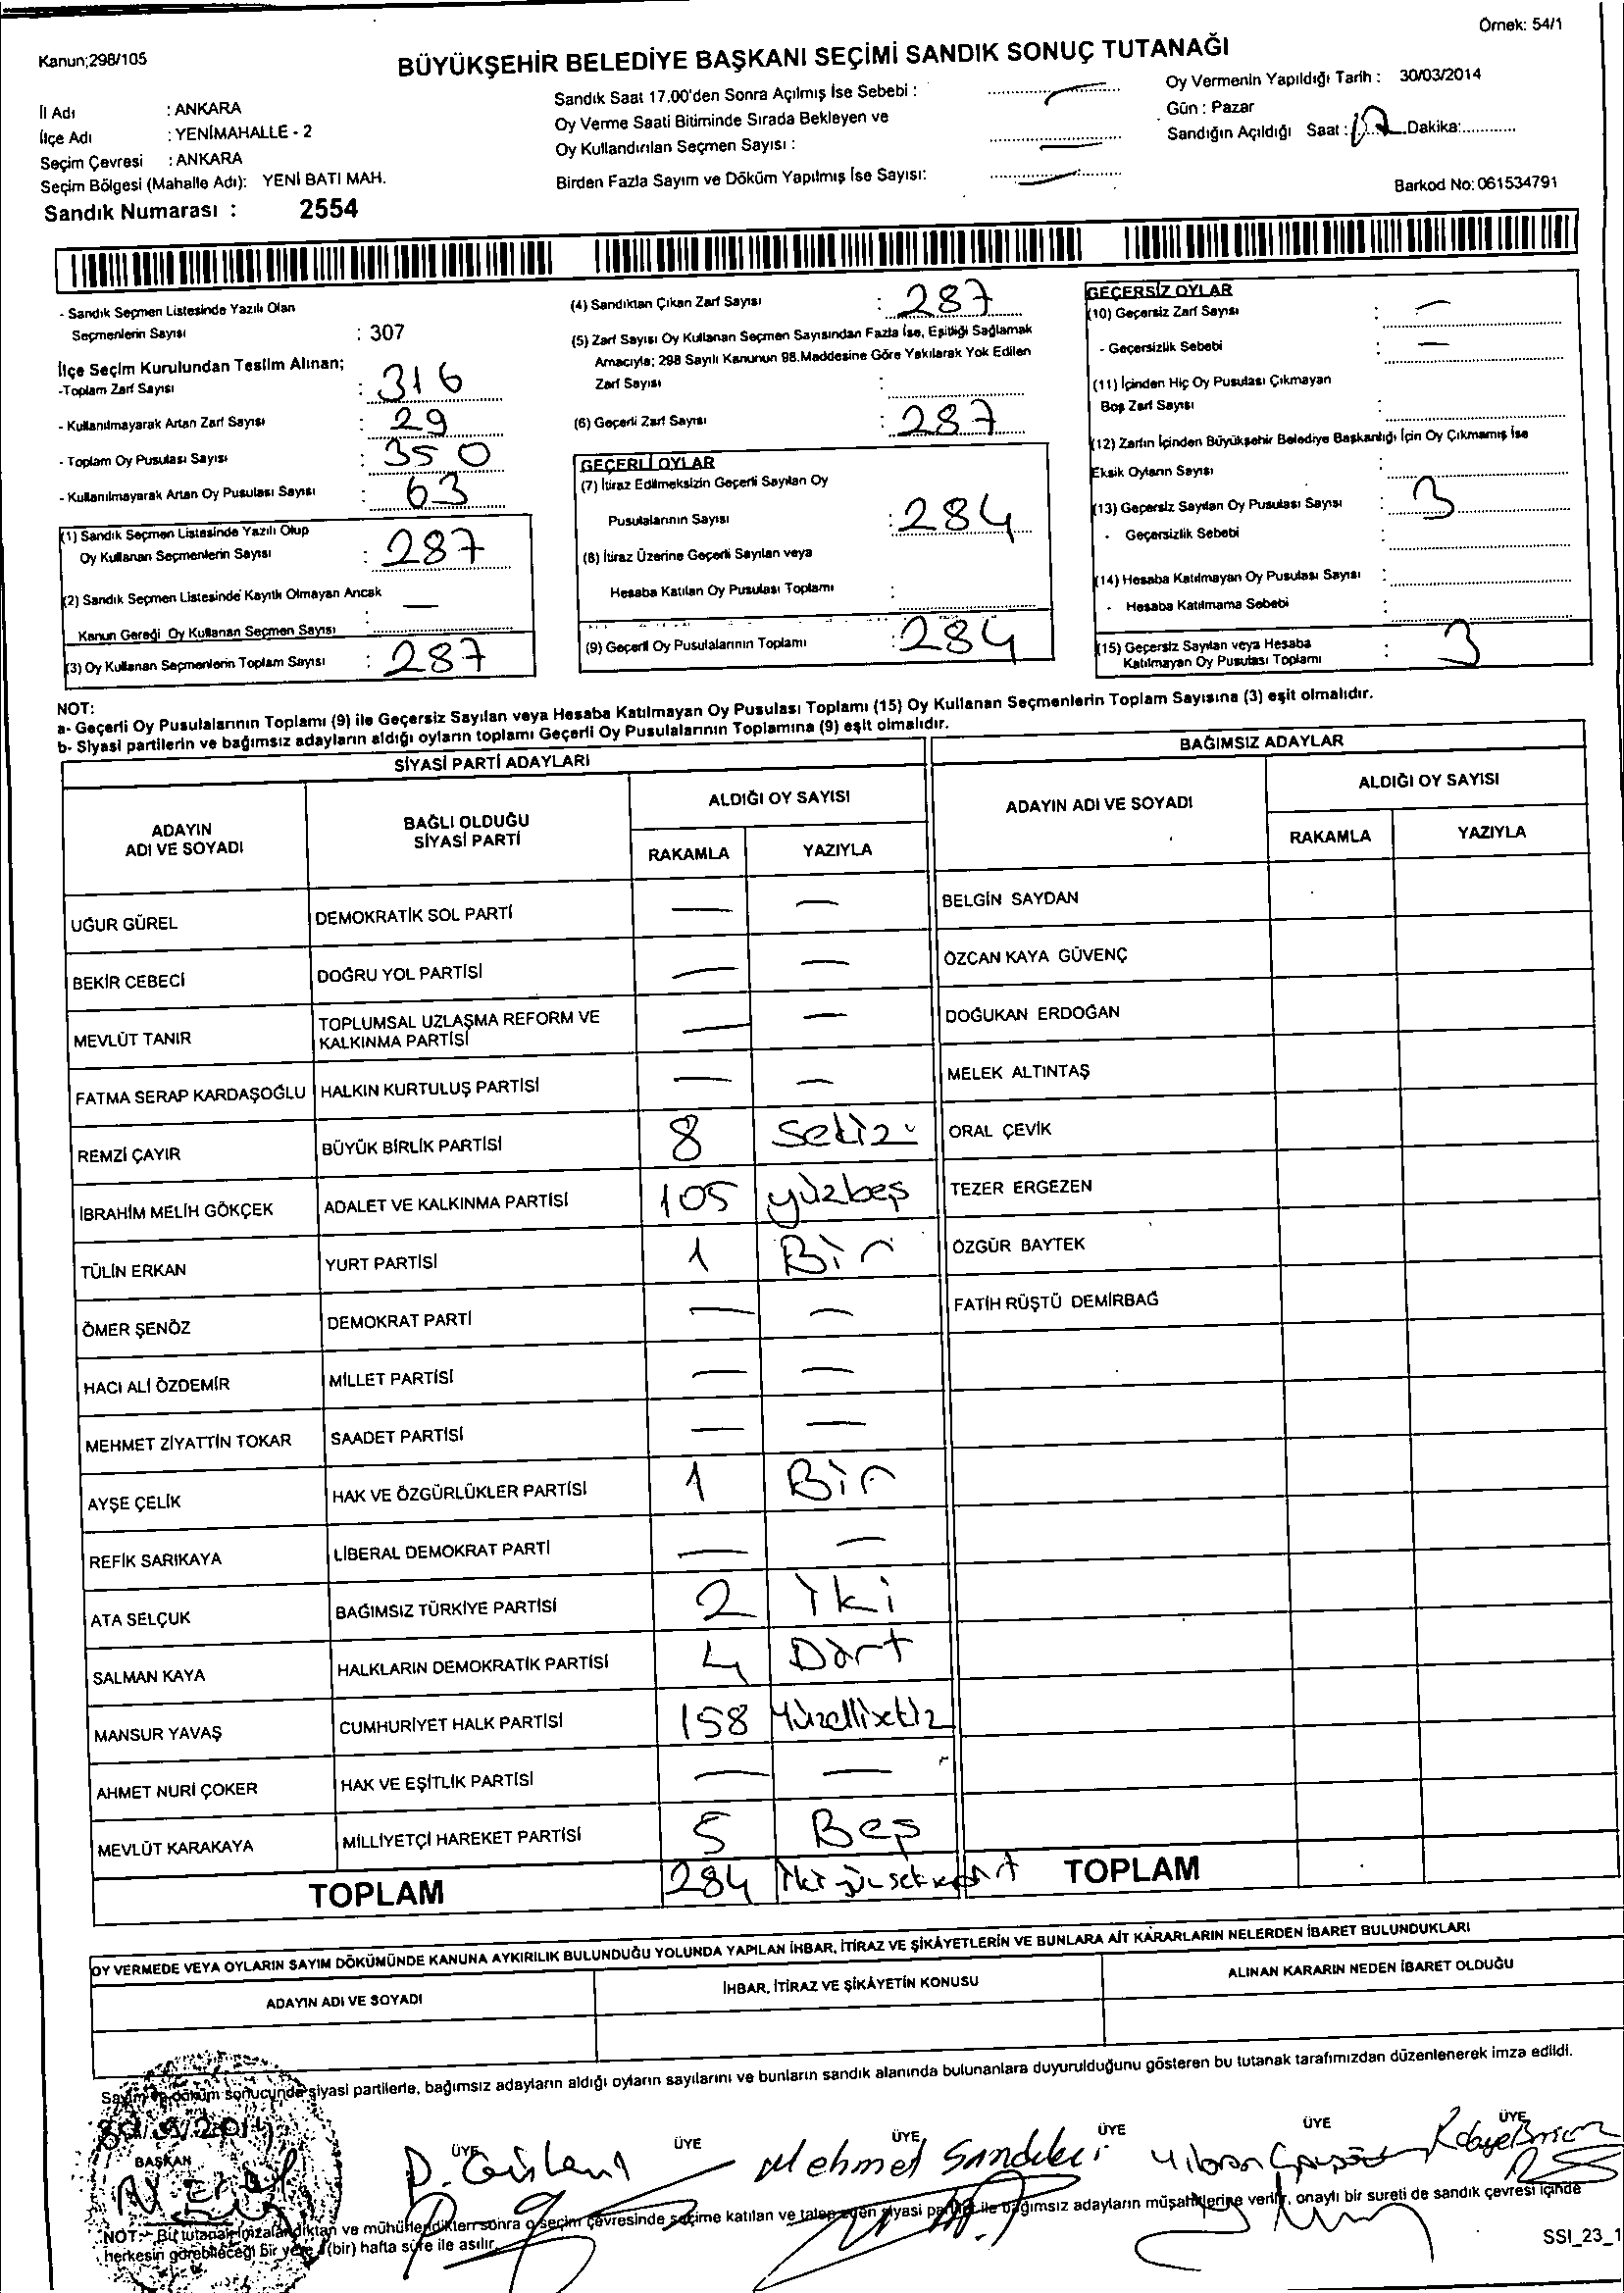 Örnek: 54/1
Kanun;298/105
BÜYÜKŞEHİR BELEDİYE BAŞKANI SEÇİMİ SANDIK SONUÇ TUTANAĞI
İl Adı : ANKARA
İlçe Adı : YENİMAHALLE - 2
Seçim Çevresi : ANKARA
Seçim Bölgesi (Mahalle Adı): YENİ BATI MAH.
Sandık Numarası : 2554
Sandık Saat 17.00'den Sonra Açılmış İse Sebebi :
Oy Verme Saati Bitiminde Sırada Bekleyen ve
Oy Kullandırılan Seçmen Sayısı :
Birden Fazla Sayım ve Döküm Yapılmış İse Sayısı:
Oy Vermenin Yapıldığı Tarih : 30/03/2014
Gün : Pazar
Sandığın Açıldığı Saat : 17 Dakika:
Barkod No: 061534791
- Sandık Seçmen Listesinde Yazılı Olan
Seçmenlerin Sayısı : 307
İlçe Seçim Kurulundan Teslim Alınan;
-Toplam Zarf Sayısı : 316
- Kullanılmayarak Artan Zarf Sayısı : 29
- Toplam Oy Pusulası Sayısı : 350
- Kullanılmayarak Artan Oy Pusulası Sayısı : 63
(1) Sandık Seçmen Listesinde Yazılı Olup
Oy Kullanan Seçmenlerin Sayısı : 287
(2) Sandık Seçmen Listesinde Kayıtlı Olmayan Ancak
Kanun Gereği Oy Kullanan Seçmen Sayısı : —
(3) Oy Kullanan Seçmenlerin Toplam Sayısı : 287
(4) Sandıktan Çıkan Zarf Sayısı : 287
(5) Zarf Sayısı Oy Kullanan Seçmen Sayısından Fazla İse, Eşitliği Sağlamak
Amacıyla; 298 Sayılı Kanunun 98.Maddesine Göre Yakılarak Yok Edilen
Zarf Sayısı :
(6) Geçerli Zarf Sayısı : 287
GEÇERLİ OYLAR
(7) İtiraz Edilmeksizin Geçerli Sayılan Oy
Pusulalarının Sayısı : 284
(8) İtiraz Üzerine Geçerli Sayılan veya
Hesaba Katılan Oy Pusulası Toplamı :
(9) Geçerli Oy Pusulalarının Toplamı : 284
GEÇERSİZ OYLAR
(10) Geçersiz Zarf Sayısı : —
- Geçersizlik Sebebi : —
(11) İçinden Hiç Oy Pusulası Çıkmayan
Boş Zarf Sayısı :
(12) Zarfın İçinden Büyükşehir Belediye Başkanlığı İçin Oy Çıkmamış İse
Eksik Oyların Sayısı :
(13) Geçersiz Sayılan Oy Pusulası Sayısı : 3
- Geçersizlik Sebebi :
(14) Hesaba Katılmayan Oy Pusulası Sayısı :
- Hesaba Katılmama Sebebi :
(15) Geçersiz Sayılan veya Hesaba
Katılmayan Oy Pusulası Toplamı : 3
NOT:
a- Geçerli Oy Pusulalarının Toplamı (9) ile Geçersiz Sayılan veya Hesaba Katılmayan Oy Pusulası Toplamı (15) Oy Kullanan Seçmenlerin Toplam Sayısına (3) eşit olmalıdır.
b- Siyasi partilerin ve bağımsız adayların aldığı oyların toplamı Geçerli Oy Pusulalarının Toplamına (9) eşit olmalıdır.
SİYASİ PARTİ ADAYLARI
ADAYIN
ADI VE SOYADI
BAĞLI OLDUĞU
SİYASİ PARTİ
ALDIĞI OY SAYISI
RAKAMLA YAZIYLA
UĞUR GÜREL DEMOKRATİK SOL PARTİ — —
BEKİR CEBECİ DOĞRU YOL PARTİSİ — —
MEVLÜT TANIR TOPLUMSAL UZLAŞMA REFORM VE
KALKINMA PARTİSİ — —
FATMA SERAP KARDAŞOĞLU HALKIN KURTULUŞ PARTİSİ — —
REMZİ ÇAYIR BÜYÜK BİRLİK PARTİSİ 8 Sekiz
İBRAHİM MELİH GÖKÇEK ADALET VE KALKINMA PARTİSİ 105 yüzbeş
TÜLİN ERKAN YURT PARTİSİ 1 Bir
ÖMER ŞENÖZ DEMOKRAT PARTİ — —
HACI ALİ ÖZDEMİR MİLLET PARTİSİ — —
MEHMET ZİYATTİN TOKAR SAADET PARTİSİ — —
AYŞE ÇELİK HAK VE ÖZGÜRLÜKLER PARTİSİ 1 Bir
REFİK SARIKAYA LİBERAL DEMOKRAT PARTİ — —
ATA SELÇUK BAĞIMSIZ TÜRKİYE PARTİSİ 2 İki
SALMAN KAYA HALKLARIN DEMOKRATİK PARTİSİ 4 Dört
MANSUR YAVAŞ CUMHURİYET HALK PARTİSİ 158
AHMET NURİ ÇOKER HAK VE EŞİTLİK PARTİSİ — —
MEVLÜT KARAKAYA MİLLİYETÇİ HAREKET PARTİSİ 5 Beş
TOPLAM 284
BAĞIMSIZ ADAYLAR
ADAYIN ADI VE SOYADI
ALDIĞI OY SAYISI
RAKAMLA YAZIYLA
BELGİN SAYDAN
ÖZCAN KAYA GÜVENÇ
DOĞUKAN ERDOĞAN
MELEK ALTINTAŞ
ORAL ÇEVİK
TEZER ERGEZEN
ÖZGÜR BAYTEK
FATİH RÜŞTÜ DEMİRBAĞ
TOPLAM
OY VERMEDE VEYA OYLARIN SAYIM DÖKÜMÜNDE KANUNA AYKIRILIK BULUNDUĞU YOLUNDA YAPILAN İHBAR, İTİRAZ VE ŞİKÂYETLERİN VE BUNLARA AİT KARARLARIN NELERDEN İBARET BULUNDUKLARI
ADAYIN ADI VE SOYADI
İHBAR, İTİRAZ VE ŞİKÂYETİN KONUSU
ALINAN KARARIN NEDEN İBARET OLDUĞU
Sayım ve döküm sonucunda siyasi partilerle, bağımsız adayların aldığı oyların sayılarını ve bunların sandık alanında bulunanlara duyurulduğunu gösteren bu tutanak tarafımızdan düzenlenerek imza edildi.
BAŞKAN ÜYE ÜYE ÜYE ÜYE ÜYE ÜYE
Mehmet
NOT:- Bu tutanak imzalandıktan ve mühürlendikten sonra o seçim çevresinde seçime katılan ve talep eden siyasi partiler ile bağımsız adayların müşahitlerine verilir, onaylı bir sureti de sandık çevresi içinde
herkesin görebileceği bir yere 1 (bir) hafta süre ile asılır.
SSI_23_1